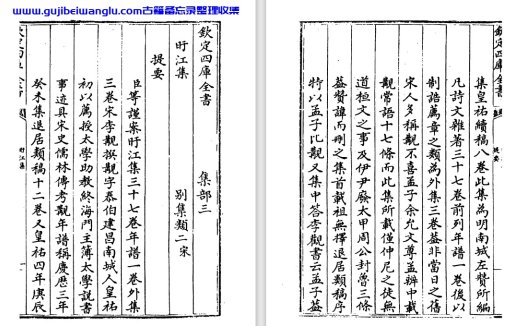 www.gujibeiwanglu.com古籍备忘录整理收集
欽定四庫全書
集部三
盱江集
别集類二宋
提要
臣等謹案盱江集三十七卷年譜一卷外集
三卷宋李覯撰覯字泰伯建昌南城人皇祐
初以薦授太學助教終海門主簿太學說書
事迹具宋史儒林傳考覯年譜稱慶厯三年
癸未集退居類稿十二卷又皇祐四年庚辰
欽定四庫全書
盱江集
集皇祐續稿八卷此集為明南城左贊所編
凡詩文雜著三十七卷前列年譜一卷後以
制誥薦章之類為外集三卷葢非當日之舊
宋人多稱覯不喜孟子余允文尊孟辨中載
覯常語十七條而此集所載僅仲尼之徒無
道桓文之事及伊尹廢太甲周公封魯三條
葢贊諱而刪之集首載祖無擇退居類稿序
特以孟子比覯又集中答李觀書云孟子葢
欽定四庫全書
提要